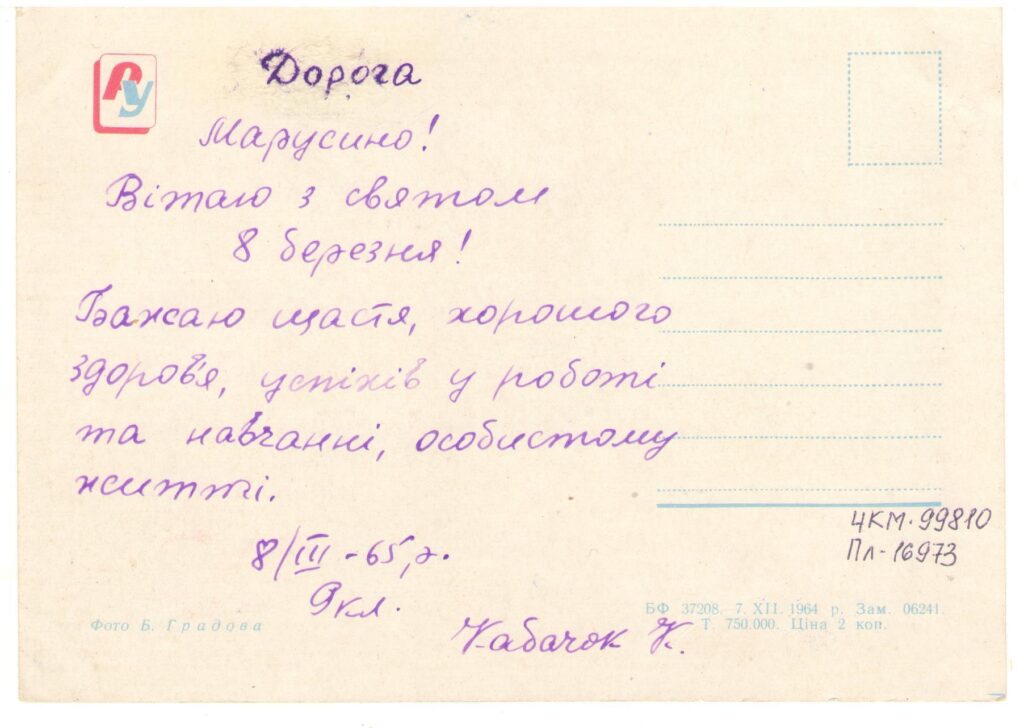 РУ
Дорога
Марусино!
Вітаю з святом
8 березня!
Бажаю щастя, хорошого
здоров'я, успіхів у роботі
та навчанні, особистому
житті.
8/III -65, р.
9 кл.
Кабачок К.
ЧКМ-99810
Пл-16973
Фото Б. Градова
БФ 37208. 7. XII. 1964 р. Зам. 06241.
Т. 750.000. Ціна 2 коп.